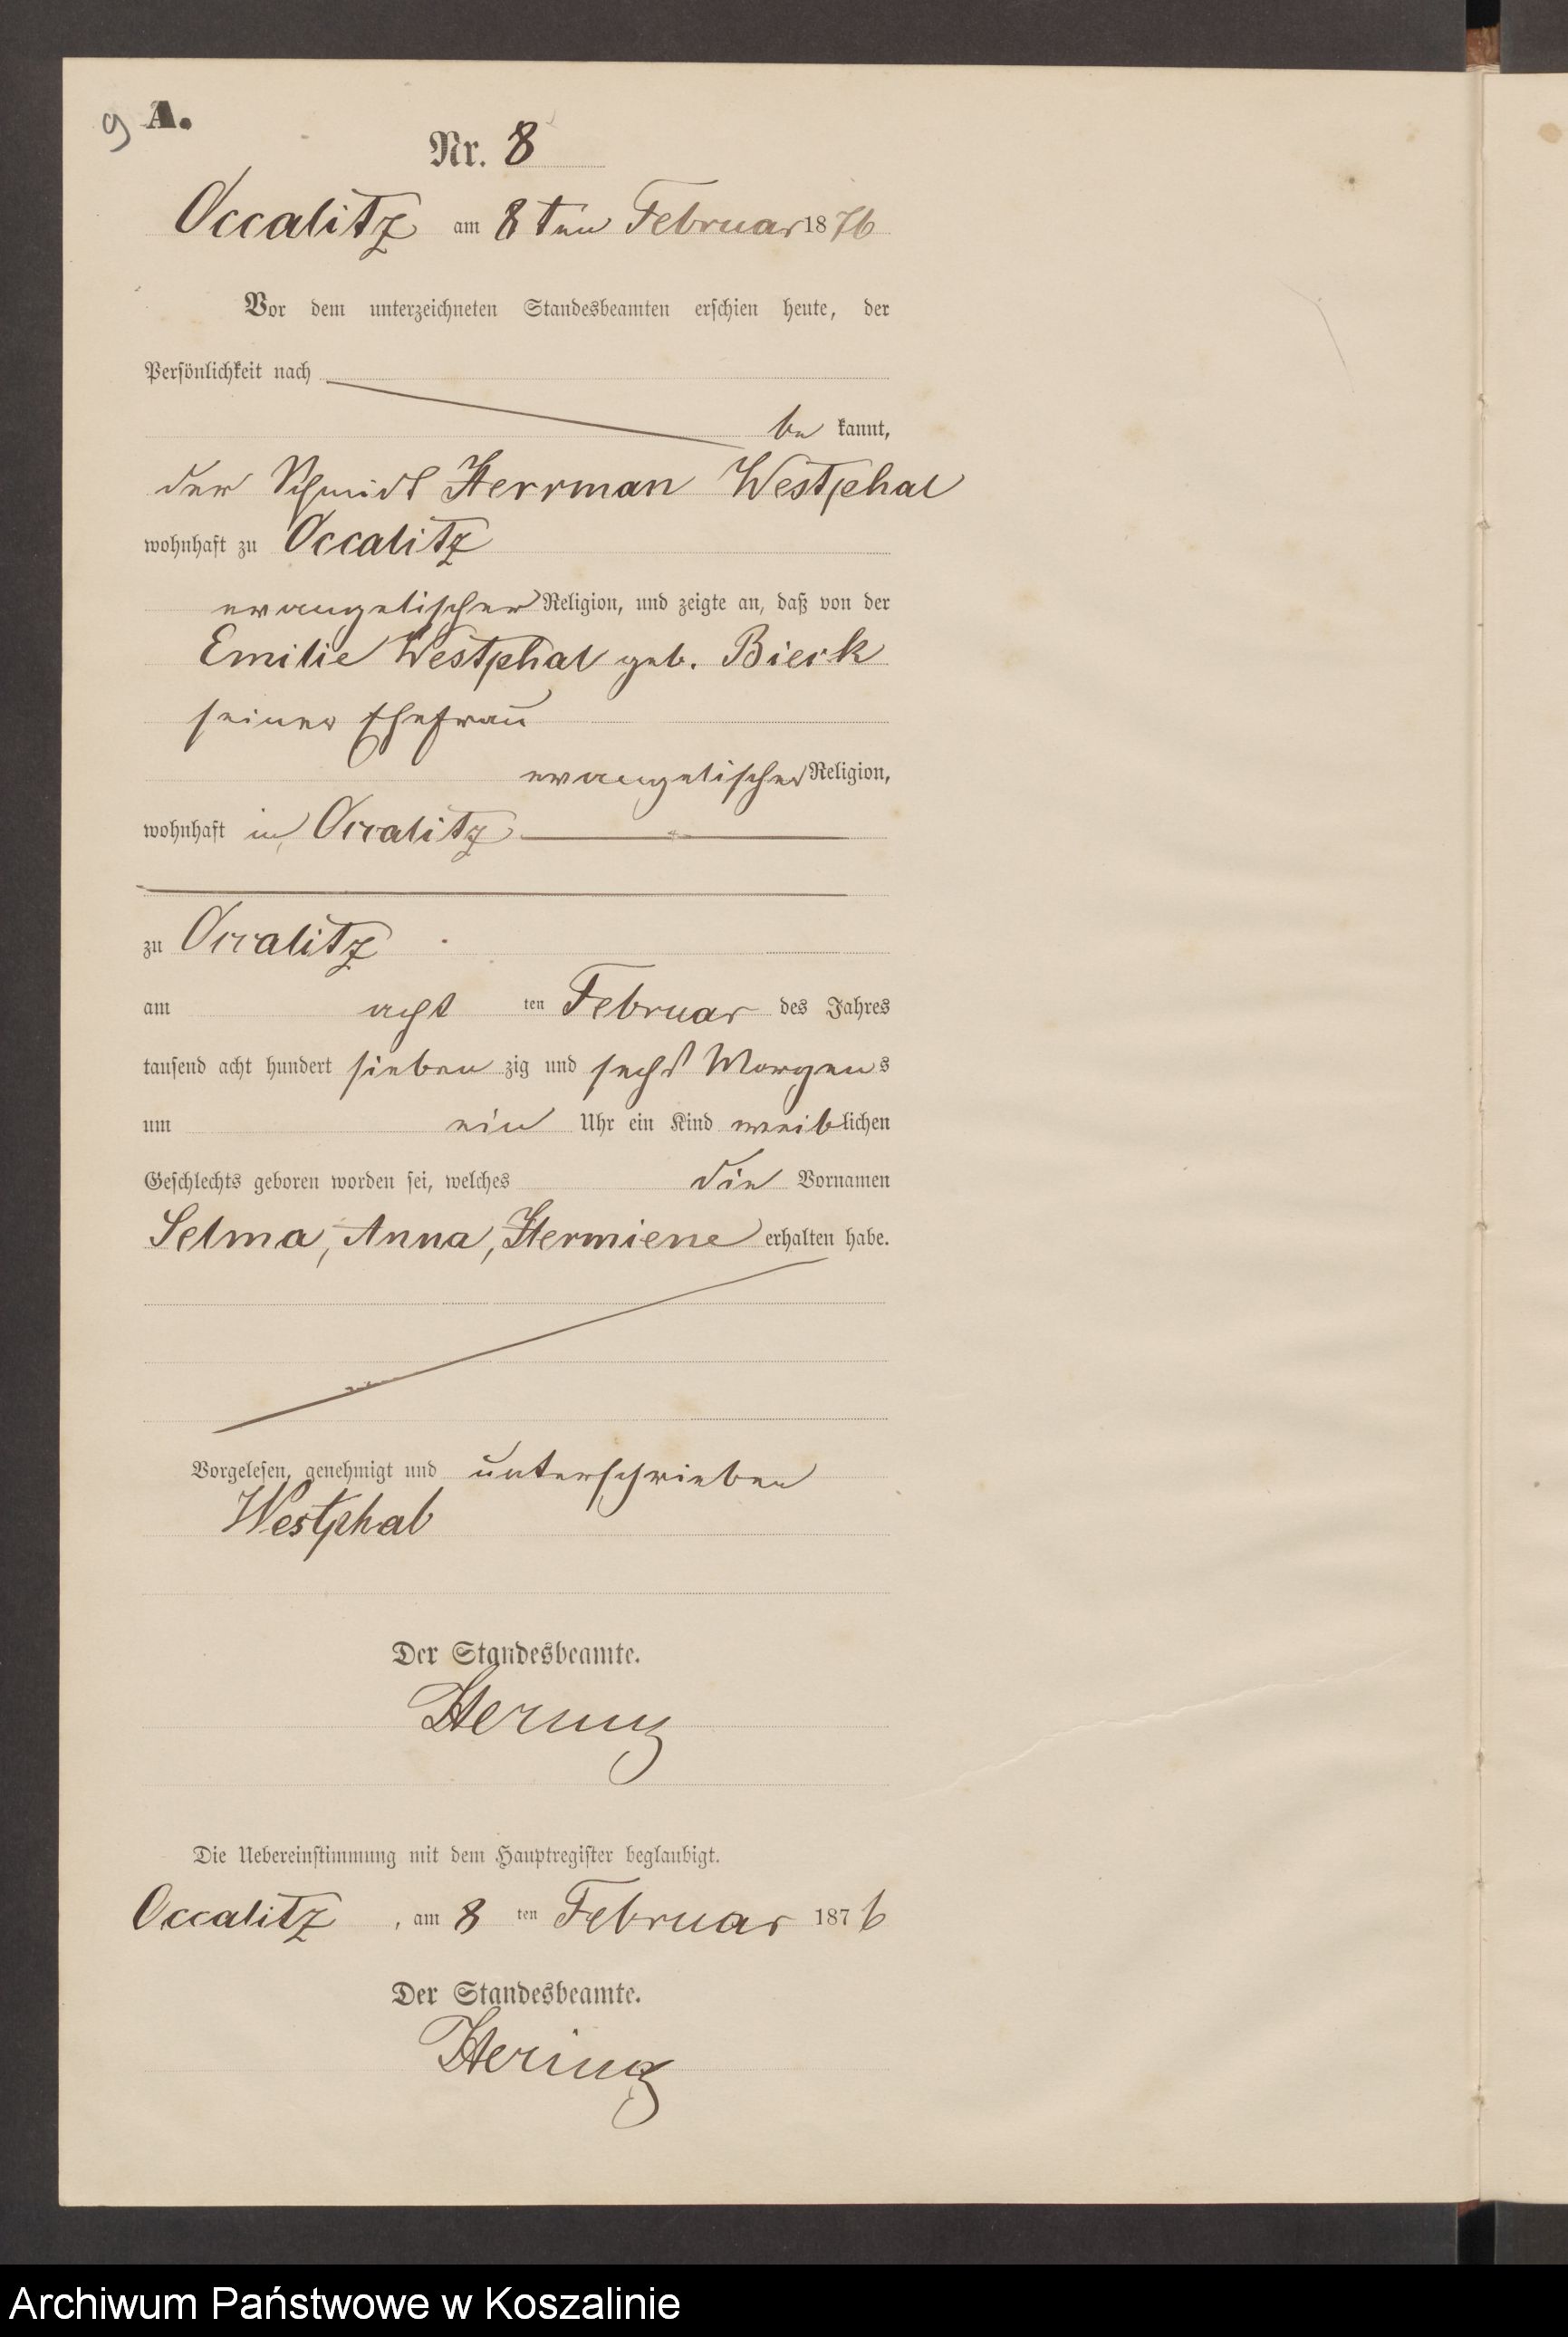 9 A.
Nr. 8
Occalitz am 8ten Februar 1876
Vor dem unterzeichneten Standesbeamten erschien heute, der
Persönlichkeit nach
be kannt,
der Schmidt Herrman Westphal
wohnhaft zu Occalitz
evangelischer Religion, und zeigte an, daß von der
Emilie Westphal geb. Bieck
seiner Ehefrau
evangelischer Religion,
wohnhaft in Occalitz
zu Occalitz
am acht ten Februar des Jahres
tausend acht hundert sieben zig und sechs Morgens
um ein Uhr ein Kind weiblichen
Geschlechts geboren worden sei, welches die Vornamen
Selma, Anna, Hermiene erhalten habe.
Vorgelesen, genehmigt und unterschrieben
Westphal
Der Standesbeamte.
Hering
Die Uebereinstimmung mit dem Hauptregister beglaubigt.
Occalitz, am 8 ten Februar 1876
Der Standesbeamte.
Hering
Archiwum Państwowe w Koszalinie